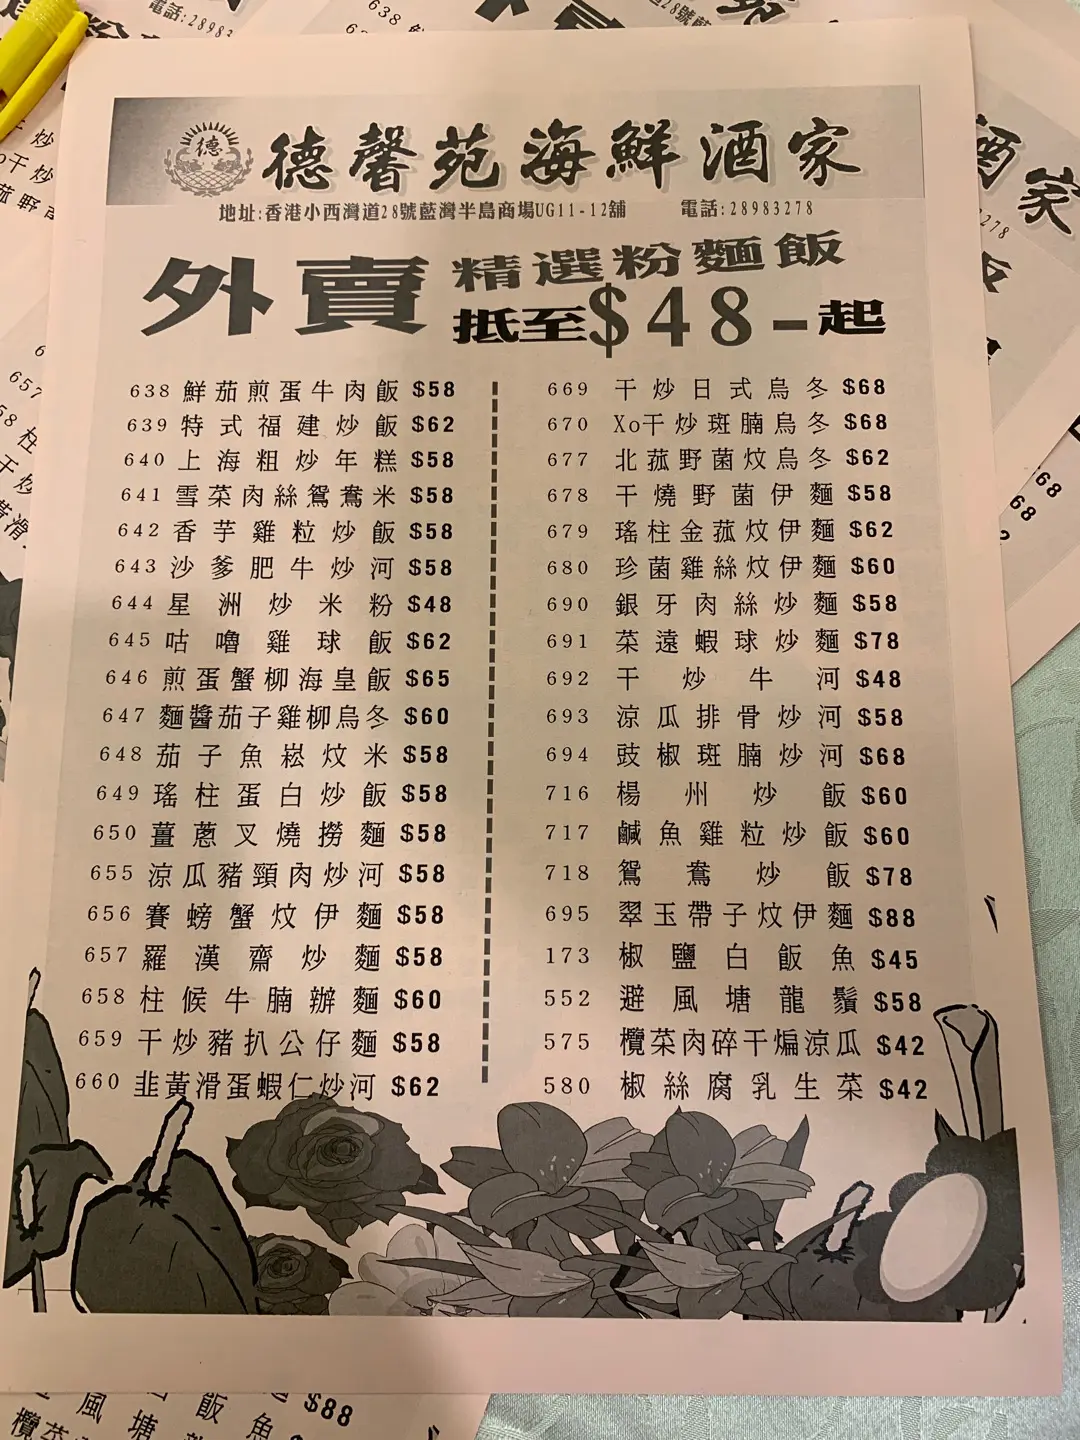 德馨苑海鮮酒家
德
地址:香港小西灣道28號藍灣半島商場UG11-12舖 電話:28983278
外賣 精選粉麵飯
抵至$48-起
638 鮮茄煎蛋牛肉飯 $58
639 特式福建炒飯 $62
640 上海粗炒年糕 $58
641 雪菜肉絲鴛鴦米 $58
642 香芋雞粒炒飯 $58
643 沙爹肥牛炒河 $58
644 星洲炒米粉 $48
645 咕嚕雞球飯 $62
646 煎蛋蟹柳海皇飯 $65
647 麵醬茄子雞柳烏冬 $60
648 茄子魚崧炆米 $58
649 瑤柱蛋白炒飯 $58
650 薑蔥叉燒撈麵 $58
655 涼瓜豬頸肉炒河 $58
656 賽螃蟹炆伊麵 $58
657 羅漢齋炒麵 $58
658 柱候牛腩辦麵 $60
659 干炒豬扒公仔麵 $58
660 韭黃滑蛋蝦仁炒河 $62
669 干炒日式烏冬 $68
670 Xo干炒斑腩烏冬 $68
677 北菰野菌炆烏冬 $62
678 干燒野菌伊麵 $58
679 瑤柱金菰炆伊麵 $62
680 珍菌雞絲炆伊麵 $60
690 銀牙肉絲炒麵 $58
691 菜遠蝦球炒麵 $78
692 干炒牛河 $48
693 涼瓜排骨炒河 $58
694 豉椒斑腩炒河 $68
716 楊州炒飯 $60
717 鹹魚雞粒炒飯 $60
718 鴛鴦炒飯 $78
695 翠玉帶子炆伊麵 $88
173 椒鹽白飯魚 $45
552 避風塘龍鬚 $58
575 欖菜肉碎干煸涼瓜 $42
580 椒絲腐乳生菜 $42